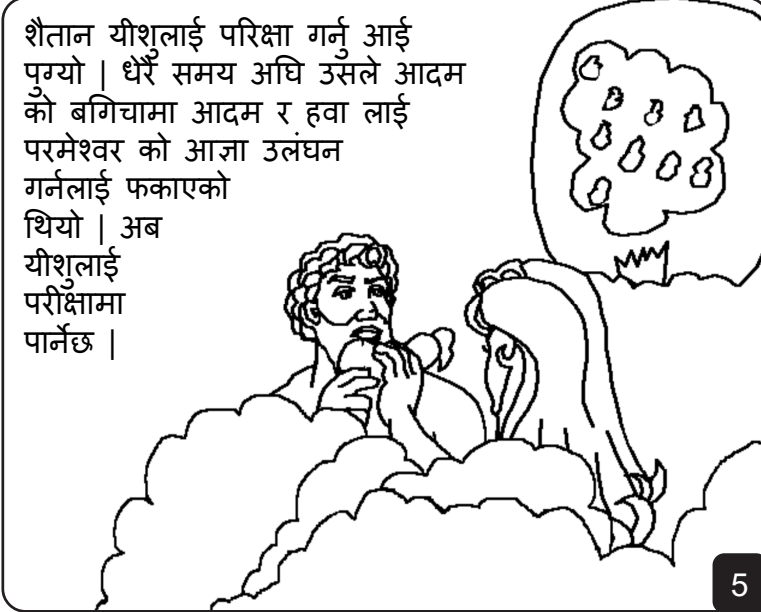 शैतान यीशुलाई परिक्षा गर्नु आई
पुग्यो | धेरै समय अघि उसले आदम
को बगिचामा आदम र हवा लाई
परमेश्वर को आज्ञा उलंघन
गर्नलाई फकाएको
थियो | अब
यीशुलाई
परीक्षामा
पार्नेछ |
5